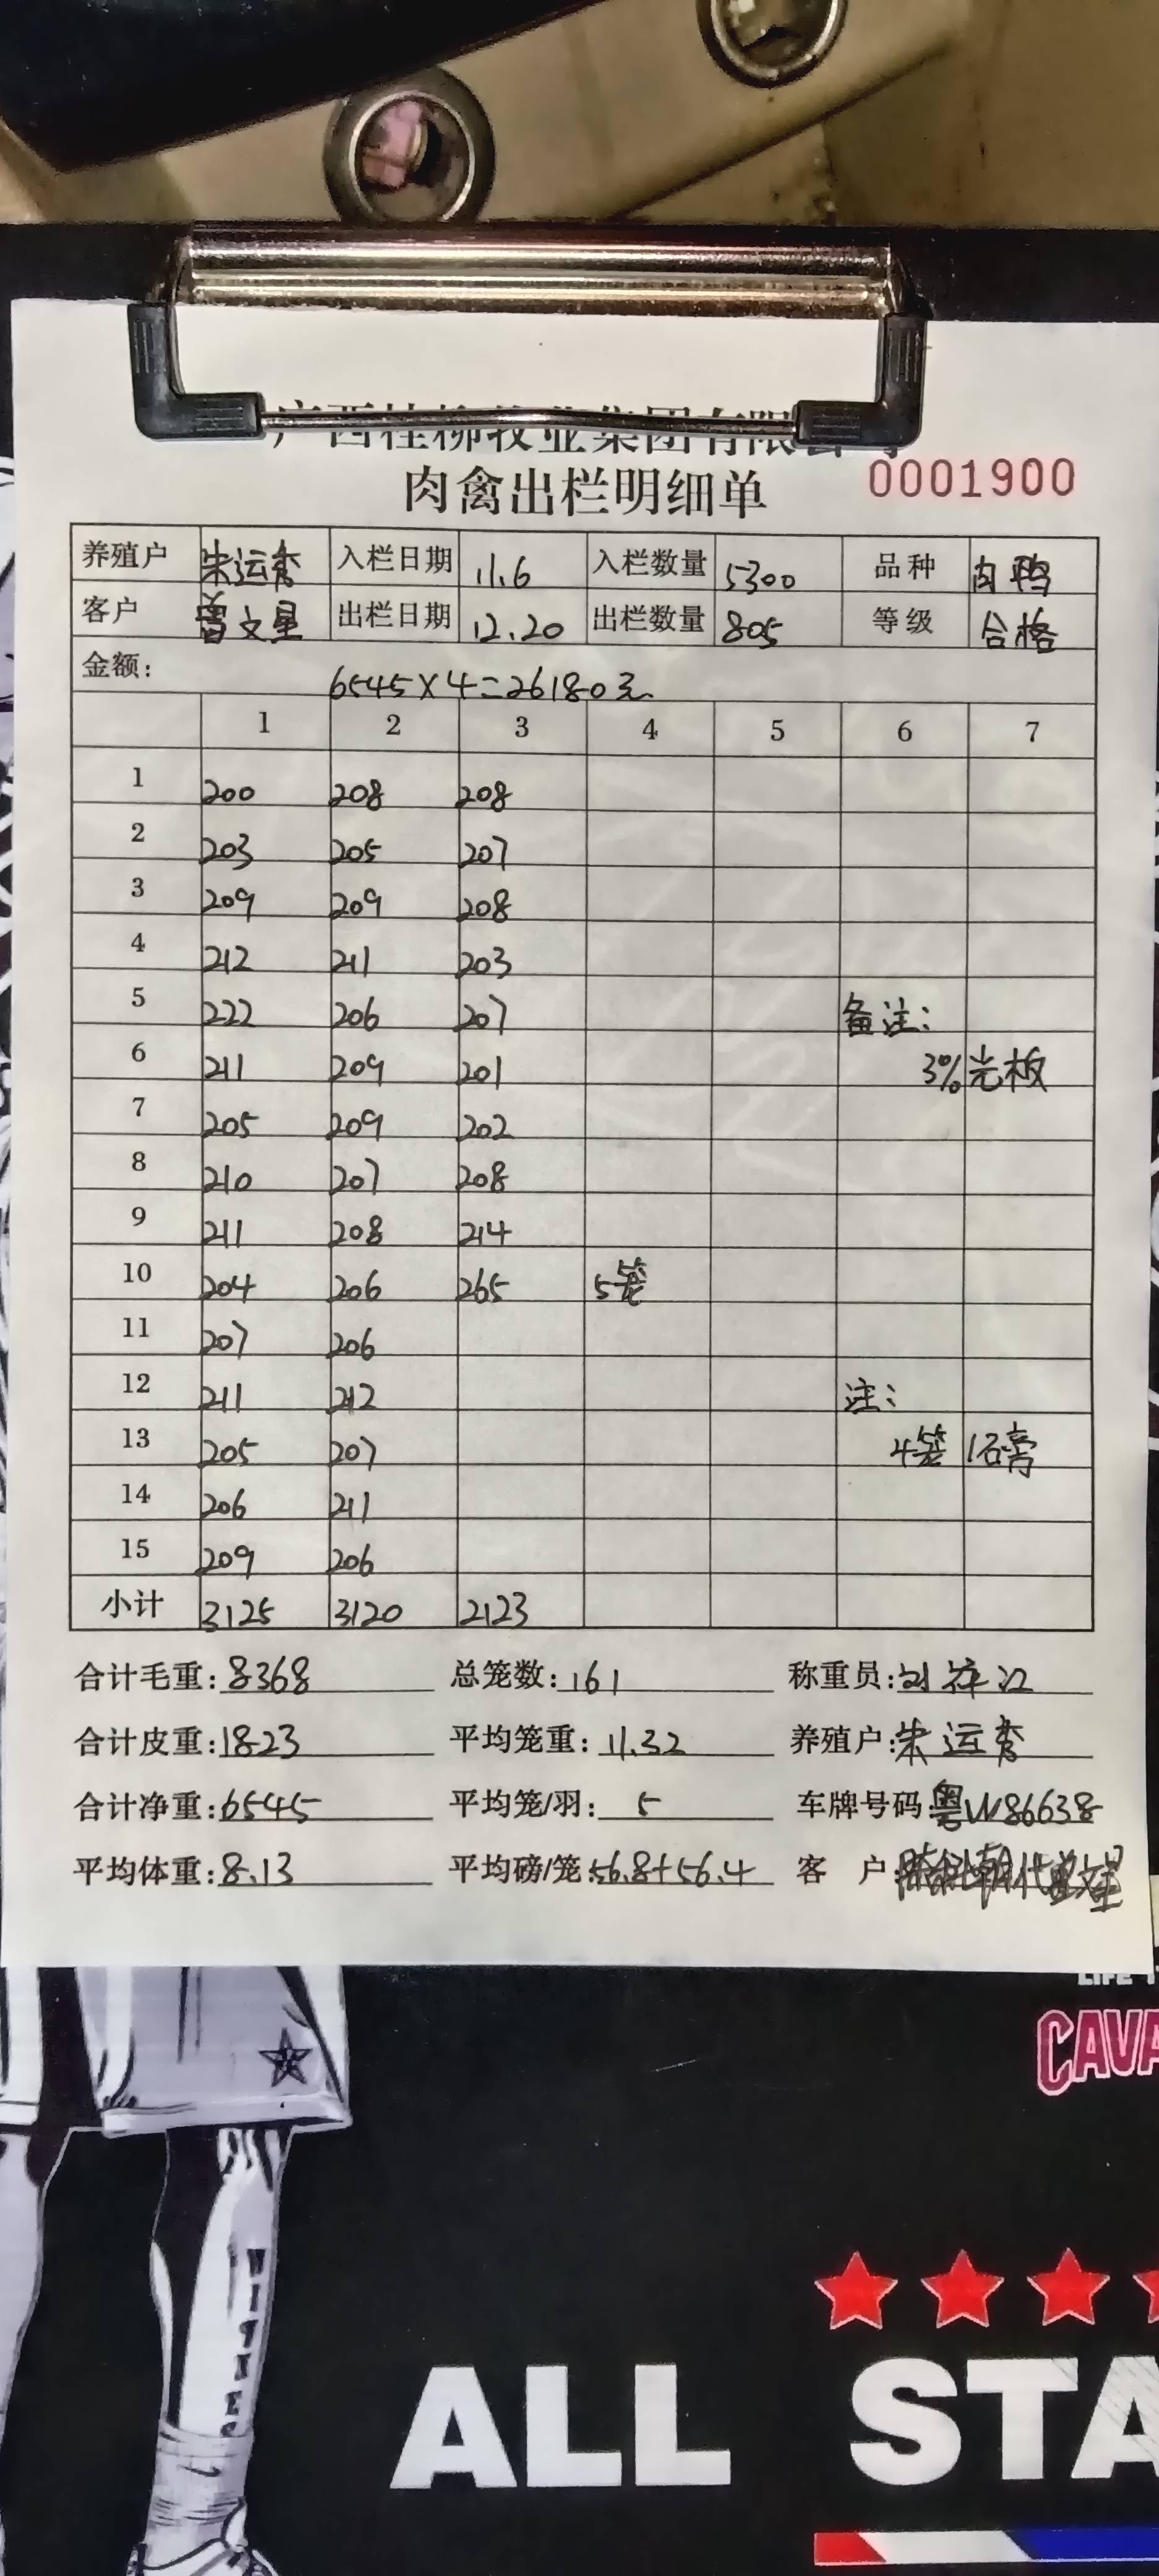 广西桂柳牧业集团有限公司
肉禽出栏明细单 0001900
养殖户 朱运秀 入栏日期 11.6 入栏数量 5300 品种 肉鸭
客户 曾文星 出栏日期 12.20 出栏数量 805 等级 合格
金额: 6545×4=26180元
1 2 3 4 5 6 7
1 200 208 208
2 203 205 207
3 209 209 208
4 212 211 203
5 222 206 207 备注:
6 211 209 201 3%光板
7 205 209 202
8 210 207 208
9 211 208 214
10 204 206 265 5笼
11 207 206
12 211 212 注:
13 205 207 4笼1石膏
14 206 211
15 209 206
小计 3125 3120 2123
合计毛重: 8368 总笼数: 161 称重员: 刘祥江
合计皮重: 1823 平均笼重: 11.32 养殖户: 朱运秀
合计净重: 6545 平均笼/羽: 5 车牌号码: 粤W86638
平均体重: 8.13 平均磅/笼: 56.8+56.4 客 户:
CAVA
ALL STA